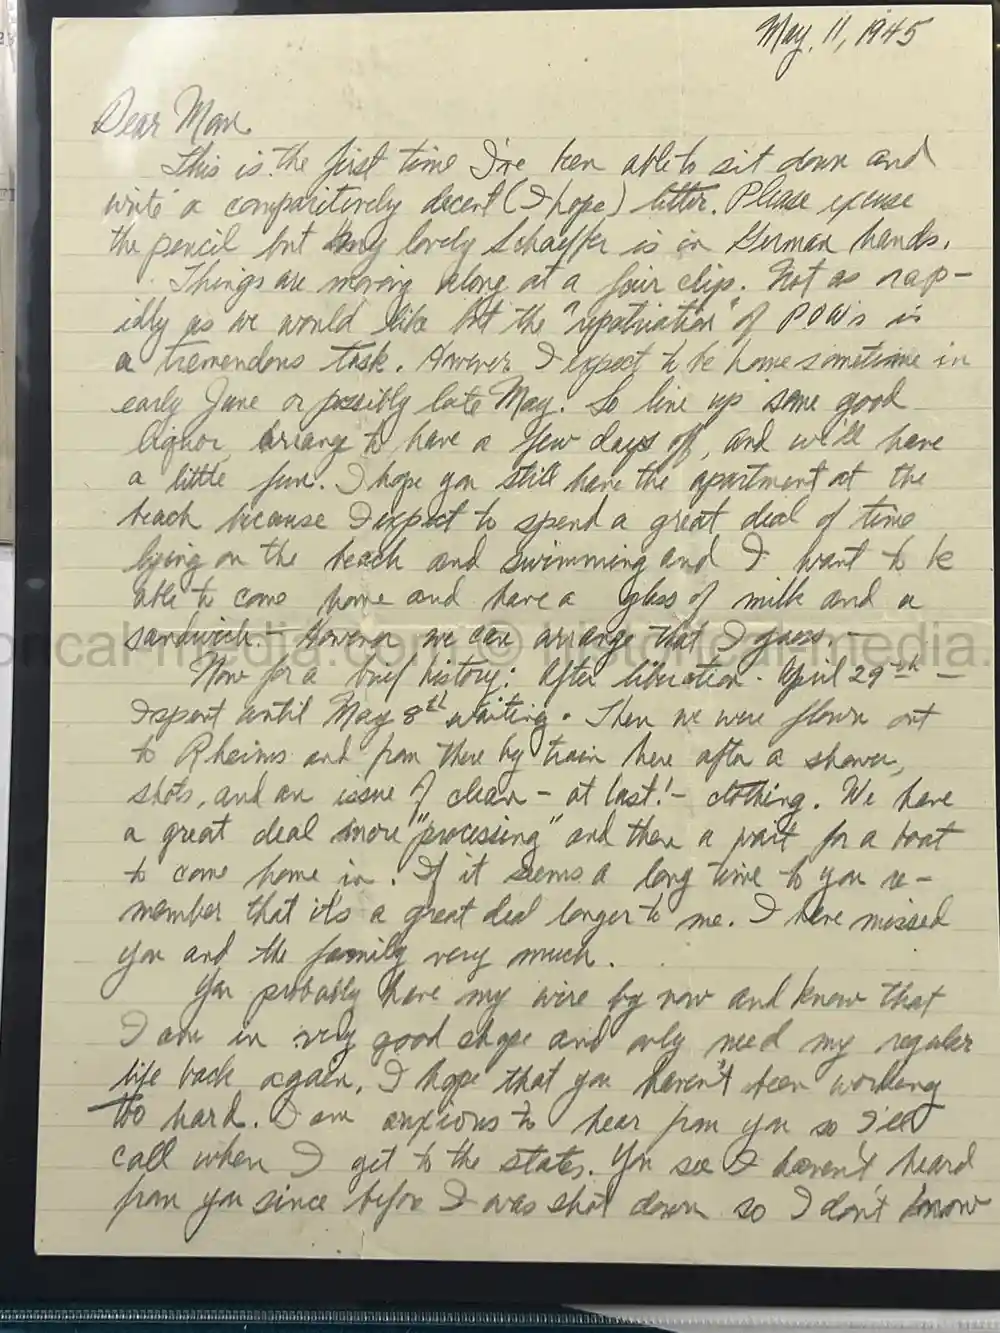 May, 11, 1945
Dear Mom.
This is the first time I've been able to sit down and
write a comparitively decent (I hope) letter. Please excuse
the pencil but my lovely Schaeffer is in German hands.
Things are moving along at a fair clip. Not as rap-
idly as we would like but the "repatriation" of POWs is
a tremendous task. However I expect to be home sometime in
early June or possibly late May. So line up some good
liquor, arrange to have a few days off, and we'll have
a little fun. I hope you still have the apartment at the
beach because I expect to spend a great deal of time
lying on the beach and swimming and I want to be
able to come home and have a glass of milk and a
sandwich - However we can arrange that I guess -
Now for a brief history: After liberation - April 29th -
I spent until May 8th waiting. Then we were flown out
to Rheims and from there by train here after a shower,
shots, and an issue of clean - at last! - clothing. We have
a great deal more "processing" and then a wait for a boat
to come home in. If it seems a long time to you re-
member that it's a great deal longer to me. I have missed
you and the family very much.
You probably have my wire by now and know that
I am in very good shape and only need my regular
life back again. I hope that you haven't been working
too hard. I am anxious to hear from you so I'll
call when I get to the states. You see I haven't heard
from you since before I was shot down so I don't know
historical-media.com © historical-media.